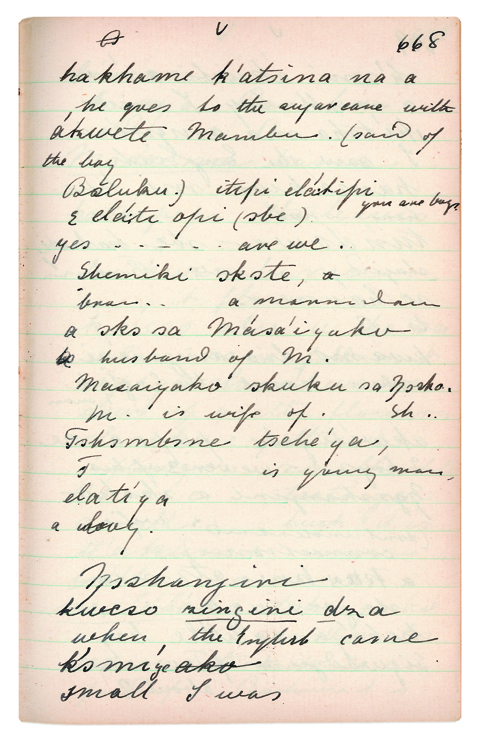 668
hakhame k'atsina na a
he goes to the sugarcane with
ákwete Mambu. (said of
the boy
Báluku.) itipi elátipi
you are boys
ɛ eláti opi (sbe)
yes - - - - - are we.
Shemiki skste, a
a man
a sks sa Másá'iyako
husband of M.
Masaiyako skuku sa
M. is wife of. Sh..
Tshsmbsne tsehé'ya,
T is young man,
elatíya
a boy.
kweso zingini dza
when the English came
k'smíyeako
small I was